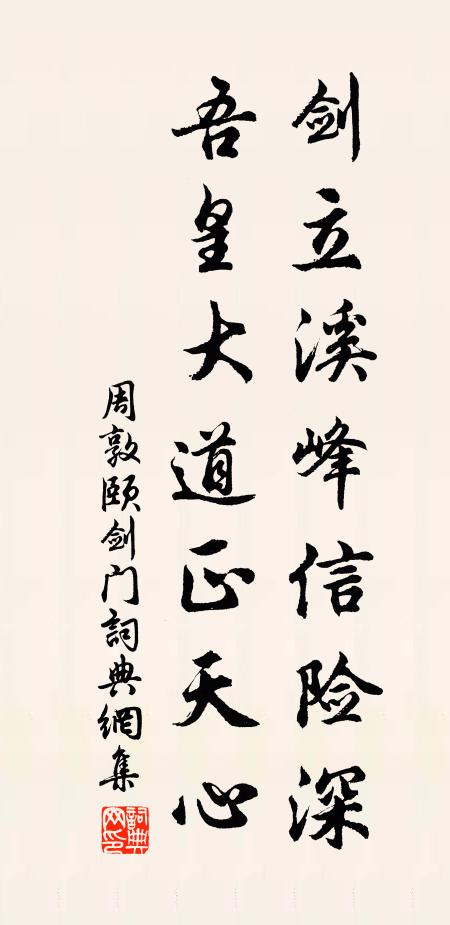 剑立溪峰信险深
吾皇大道正天心
周敦颐剑门词典網集
詞典網印